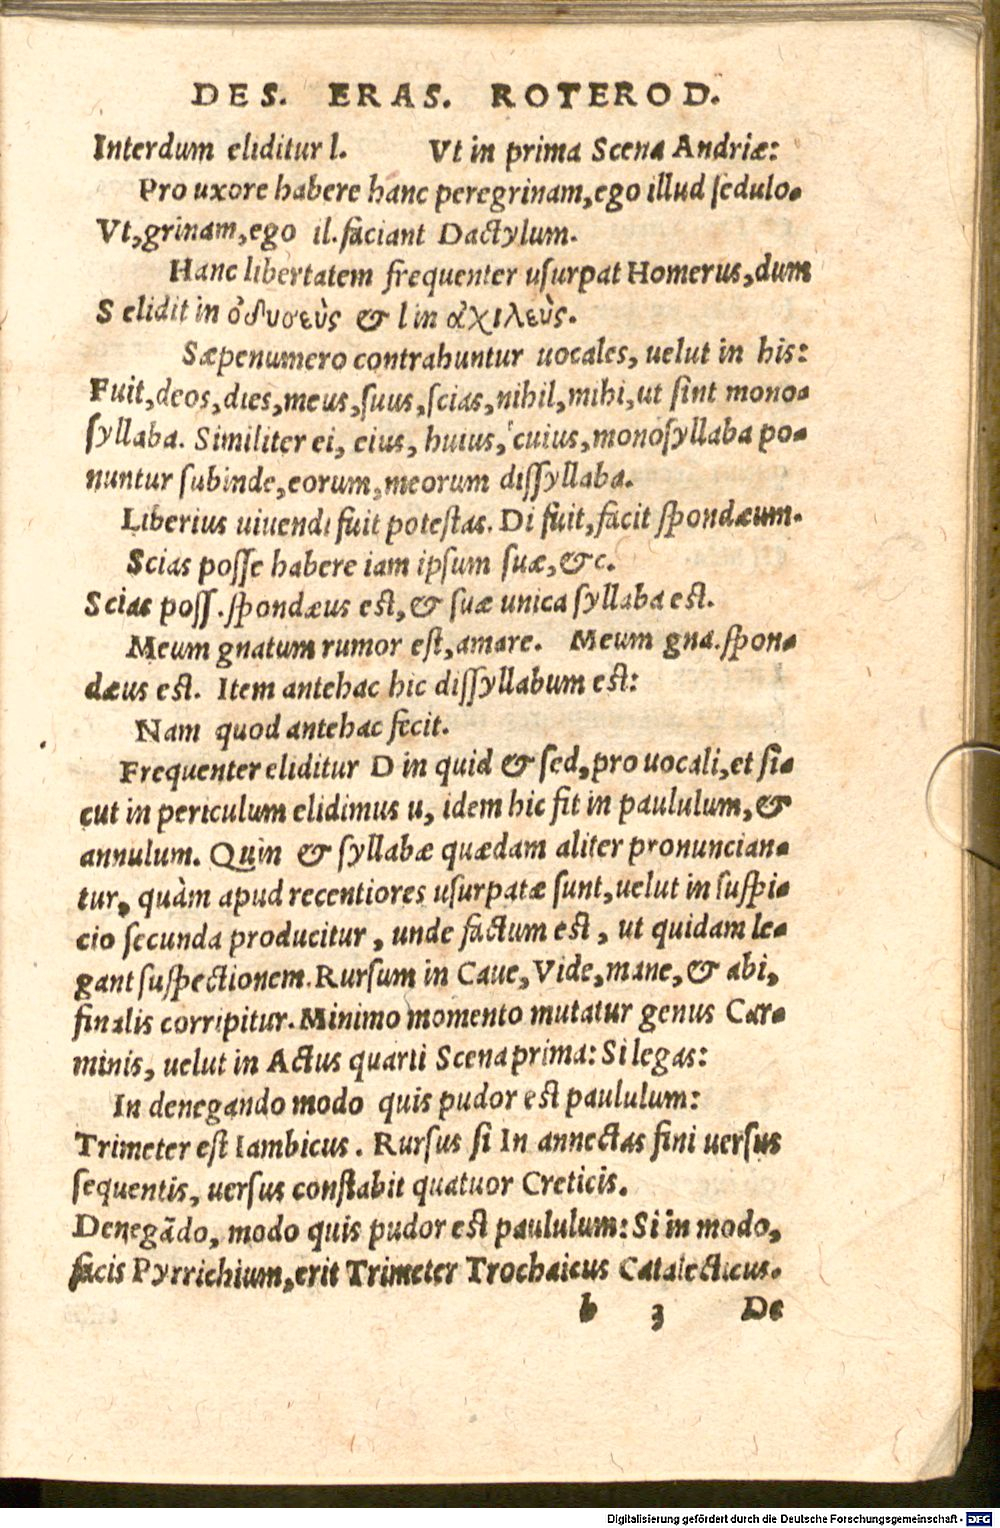 DES. ERAS. ROTEROD.
Interdum eliditur l. Vt in prima Scena Andriæ:
Pro uxore habere hanc peregrinam, ego illud ſedulo.
Vt, grinam, ego il. faciant Dactylum.
Hanc libertatem frequenter uſurpat Homerus, dum
S elidit in ὀδυσεὺς & l in ἀχιλεὺς.
Sæpenumero contrahuntur uocales, uelut in his:
Fuit, deos, dies, meus, ſuus, ſcias, nihil, mihi, ut ſint mono-
ſyllaba. Similiter ei, eius, huius, cuius, monoſyllaba po-
nuntur ſubinde, eorum, meorum diſſyllaba.
Liberius uiuendi fuit poteſtas. Di fuit, facit ſpondæum.
Scias poſſe habere iam ipſum ſuæ, &c.
Scias poſſ. ſpondæus eſt, & ſuæ unica ſyllaba eſt.
Meum gnatum rumor eſt, amare. Meum gna. ſpon-
dæus eſt. Item antehac hic diſſyllabum eſt:
Nam quod antehac fecit.
Frequenter eliditur D in quid & ſed, pro uocali, et ſi-
cut in periculum elidimus u, idem hic fit in paululum, &
annulum. Quin & ſyllabæ quædam aliter pronuncian-
tur, quàm apud recentiores uſurpatæ ſunt, uelut in ſuſpi-
cio ſecunda producitur, unde factum eſt, ut quidam le-
gant ſuſpectionem. Rurſum in Caue, Vide, mane, & abi,
finalis corripitur. Minimo momento mutatur genus Car-
minis, uelut in Actus quarti Scena prima: Si legas:
In denegando modo quis pudor eſt paululum:
Trimeter eſt Iambicus. Rurſus ſi In annectas fini uerſus
ſequentis, uerſus conſtabit quatuor Creticis.
Denegãdo, modo quis pudor eſt paululum: Si in modo,
facis Pyrrichium, erit Trimeter Trochaicus Catalecticus.
b 3 De
Digitalisierung gefördert durch die Deutsche Forschungsgemeinschaft - DFG